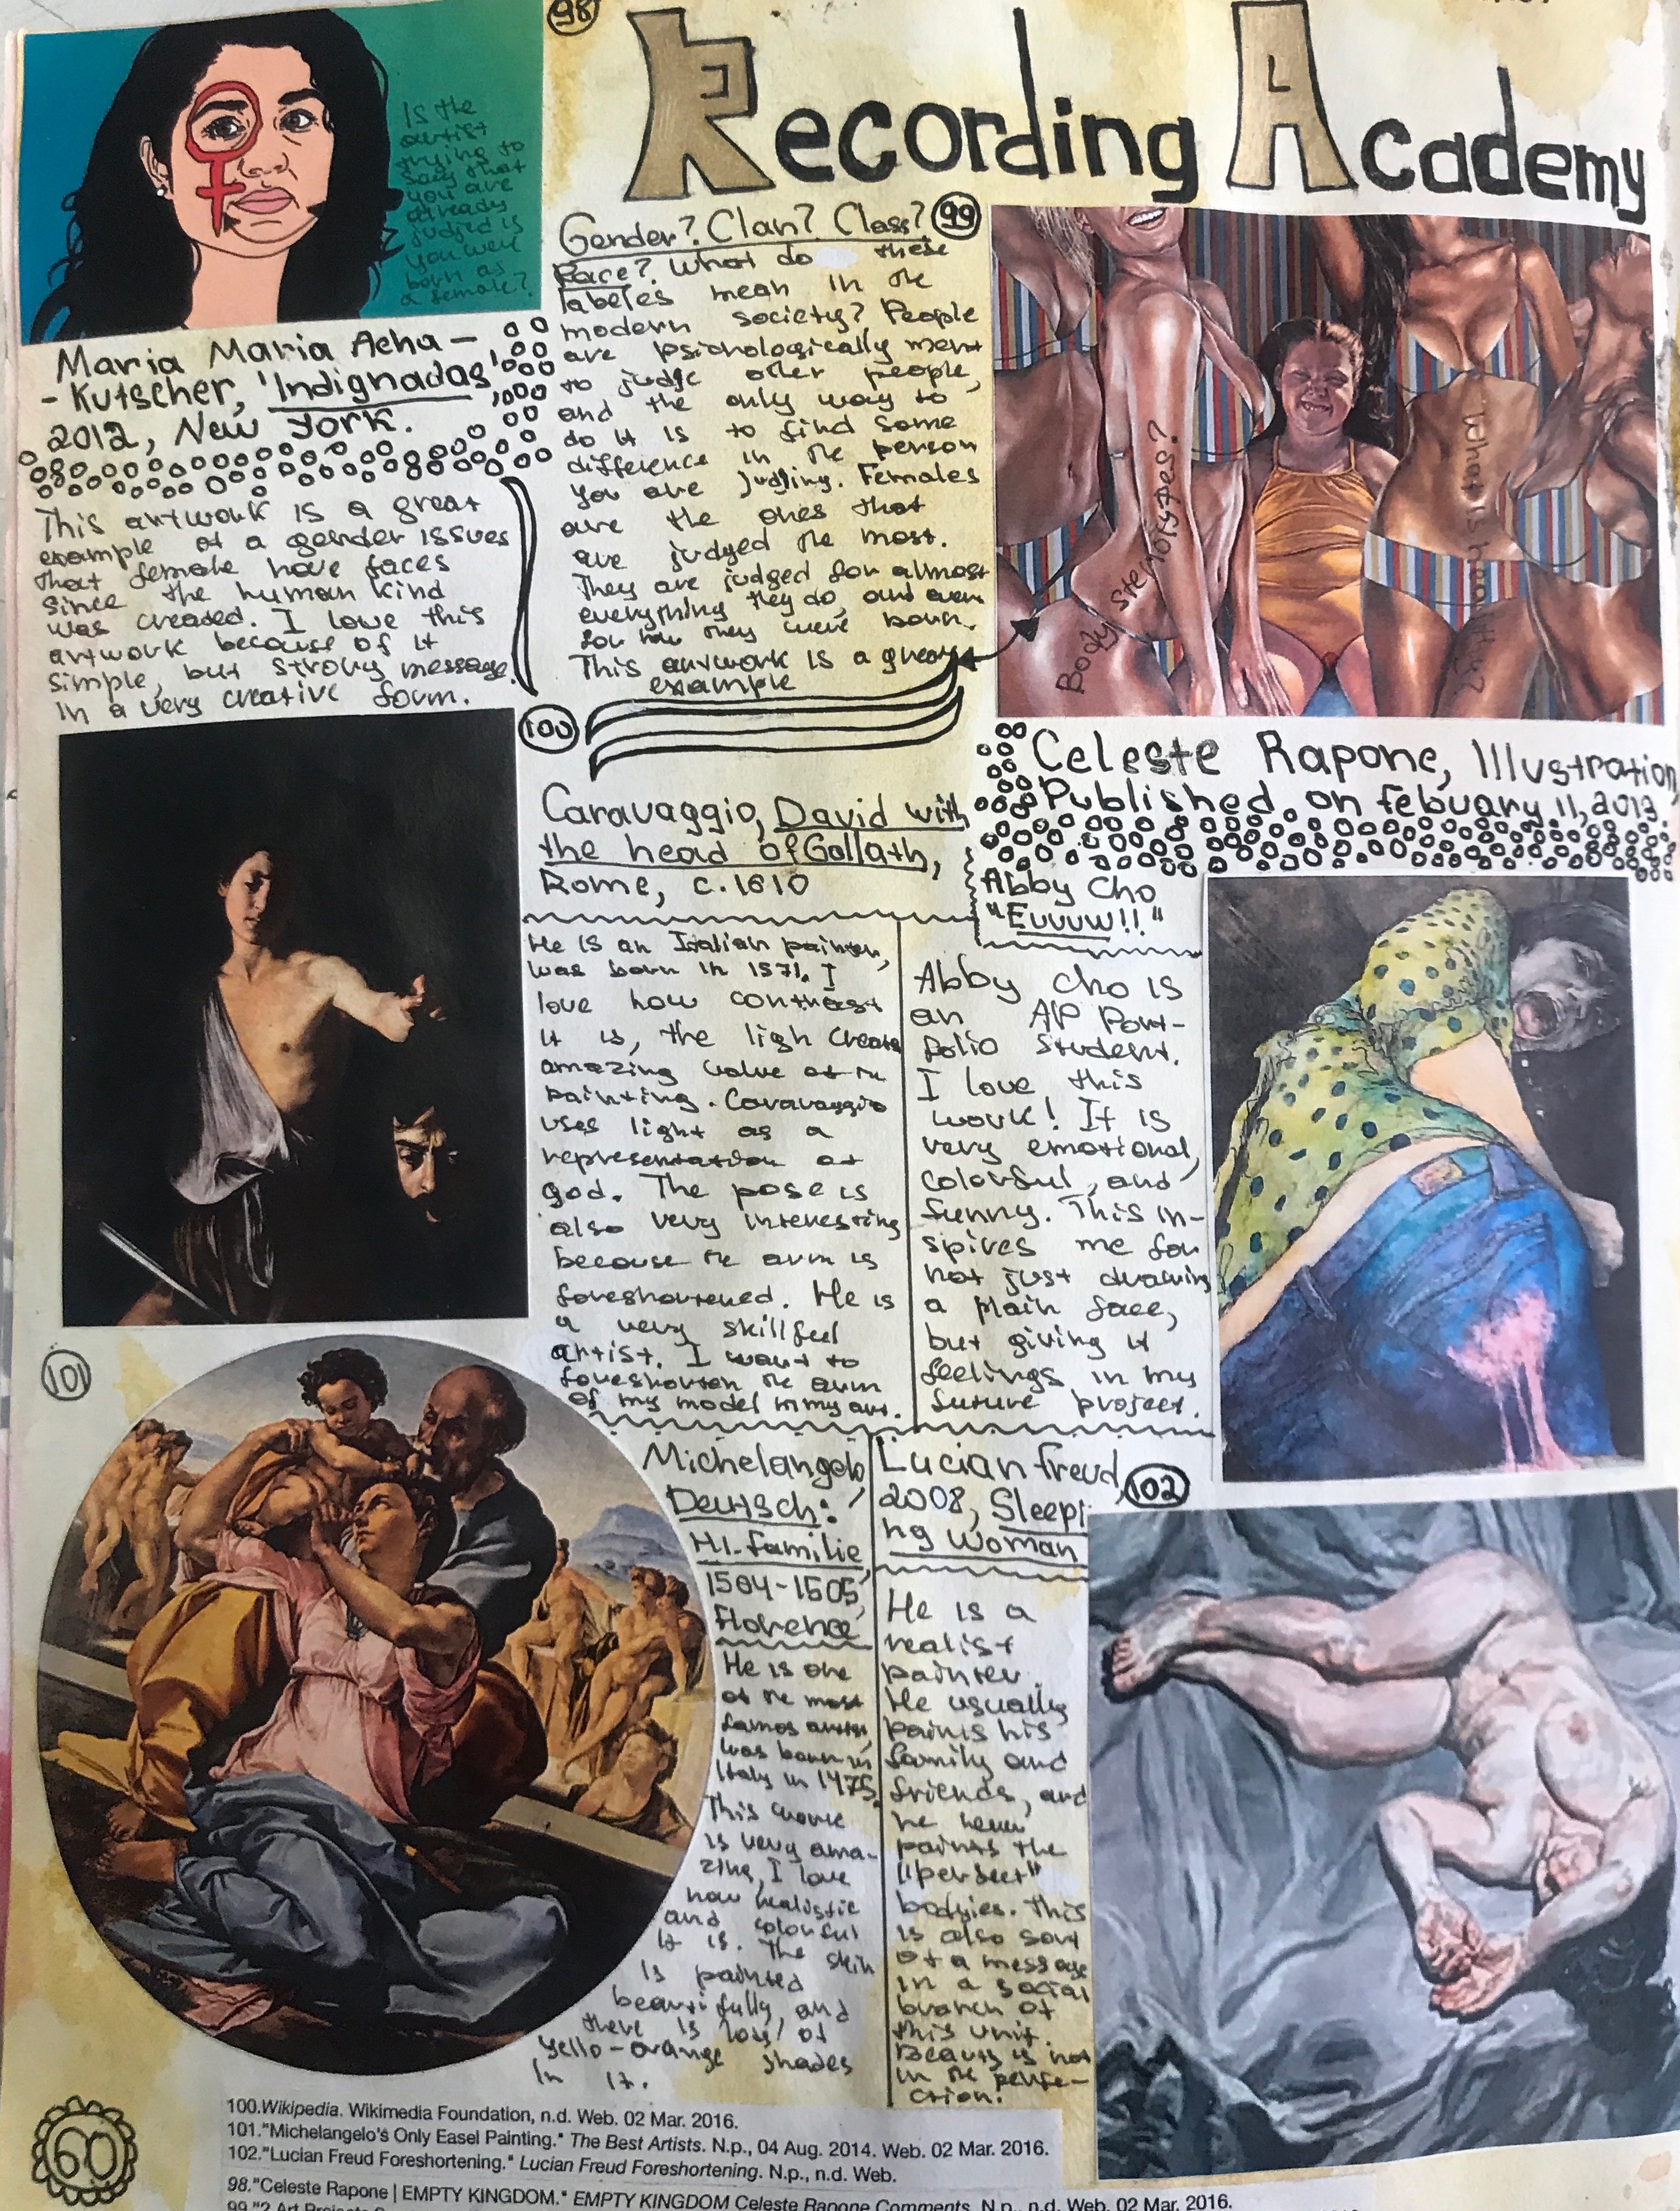 98
Recording Academy
Is the
artist
trying to
say that
you are
already
judged is
you were
born as
a female?
Maria Maria Acha-
-Kutscher, 'Indignadas',
2012, New York.
This artwork is a great
example of a gender issues
that female have faces
since the human kind
was created. I love this
artwork because of it
simple, but strong message.
In a very creative form.
99
Gender? Clan? Class?
Race? What do these
labeles mean in the
modern society? People
are psichologically ment
to judge other people,
and the only way to
do it is to find some
difference in the person
you are judjing. Females
are the ones that
are judged the most.
They are judged for almost
everything they do, and even
for how they were born.
This artwork is a great
example
Body stereotypes?
What is healthy?
Celeste Rapone, Illustration,
Published on febuary 11, 2013.
100
Caravaggio, David with
the head of Goliath,
Rome, c.1610
He is an Italian painter,
was born in 1571. I
love how contrast
it is, the ligh create
amazing value of the
painting. Caravaggio
uses light as a
representation of
god. The pose is
also very interesting
because the arm is
foreshortened. He is
a very skillfeel
artist. I want to
foreshorten the arm
of my model in my art.
Abby Cho
"Euuuw!!"
Abby Cho is
an AP Port-
folio student.
I love this
work! It is
very emotional,
colorful, and
funny. This in-
spires me for
not just drawing
a plain face,
but giving it
feelings in my
future project.
101
Michelangelo,
Deutsch:
Hl. familie,
1504-1505,
Florence
He is one
of the most
famos artist,
was born in
Italy in 1475.
This work
is very ama-
zing, I love
how realistic
and colorful
it is. The skin
is painted
beautifully, and
there is lots of
yello-orange shades
in it.
102
Lucian freud,
2008, Sleepi
ng Woman
He is a
realist
painter.
He usually
paints his
family and
friends, and
he never
paints the
"perfect"
bodyies. This
is also sort
of a message
in a social
branch of
this unit.
Beauty is not
in the perfe-
ction.
60
100.Wikipedia. Wikimedia Foundation, n.d. Web. 02 Mar. 2016.
101."Michelangelo's Only Easel Painting." The Best Artists. N.p., 04 Aug. 2014. Web. 02 Mar. 2016.
102."Lucian Freud Foreshortening." Lucian Freud Foreshortening. N.p., n.d. Web.
98."Celeste Rapone | EMPTY KINGDOM." EMPTY KINGDOM Celeste Rapone Comments. N.p., n.d. Web. 02 Mar. 2016.
99."2 Art Projects